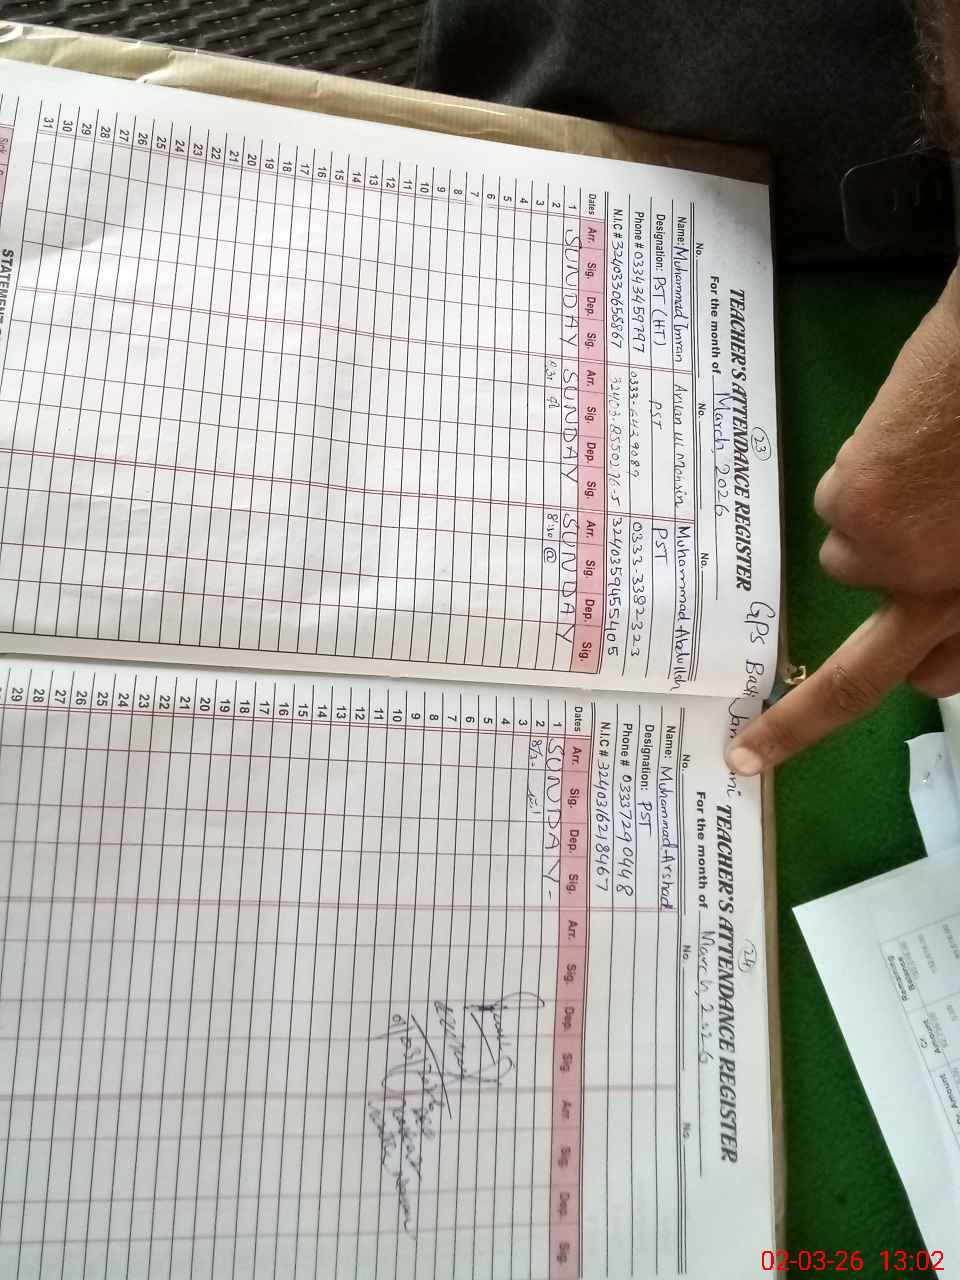 (23)
TEACHER'S ATTENDANCE REGISTER GPS Bay
For the month of March, 2026
No. No. No.
Name: Muhammad Imran Muhammad Abdullah
Designation: PST (HT) PST PST
Phone # 03343459797 0333-3382323
N.I.C # 3240330658867 3240359455405
Dates Arr. Sig. Dep. Sig. Arr. Sig. Dep. Sig. Arr. Sig. Dep. Sig.
1 SUNDAY SUNDAY SUNDAY
2 8:30
3
4
5
6
7
8
9
10
11
12
13
14
15
16
17
18
19
20
21
22
23
24
25
26
27
28
29
30
31
(24)
TEACHER'S ATTENDANCE REGISTER
For the month of March, 2026
No. No. No.
Name: Muhammad Arshad
Designation: PST
Phone # 03337240448
N.I.C # 3240316218467
Dates Arr. Sig. Dep. Sig. Arr. Sig. Dep. Sig. Arr. Sig. Dep. Sig.
1 SUNDAY -
2
3
4
5
6
7
8
9
10
11
12
13
14
15
16
17
18
19
20
21
22
23
24
25
26
27
28
29
Remaining Balance
Cr Amount
Amount
02-03-26 13:02